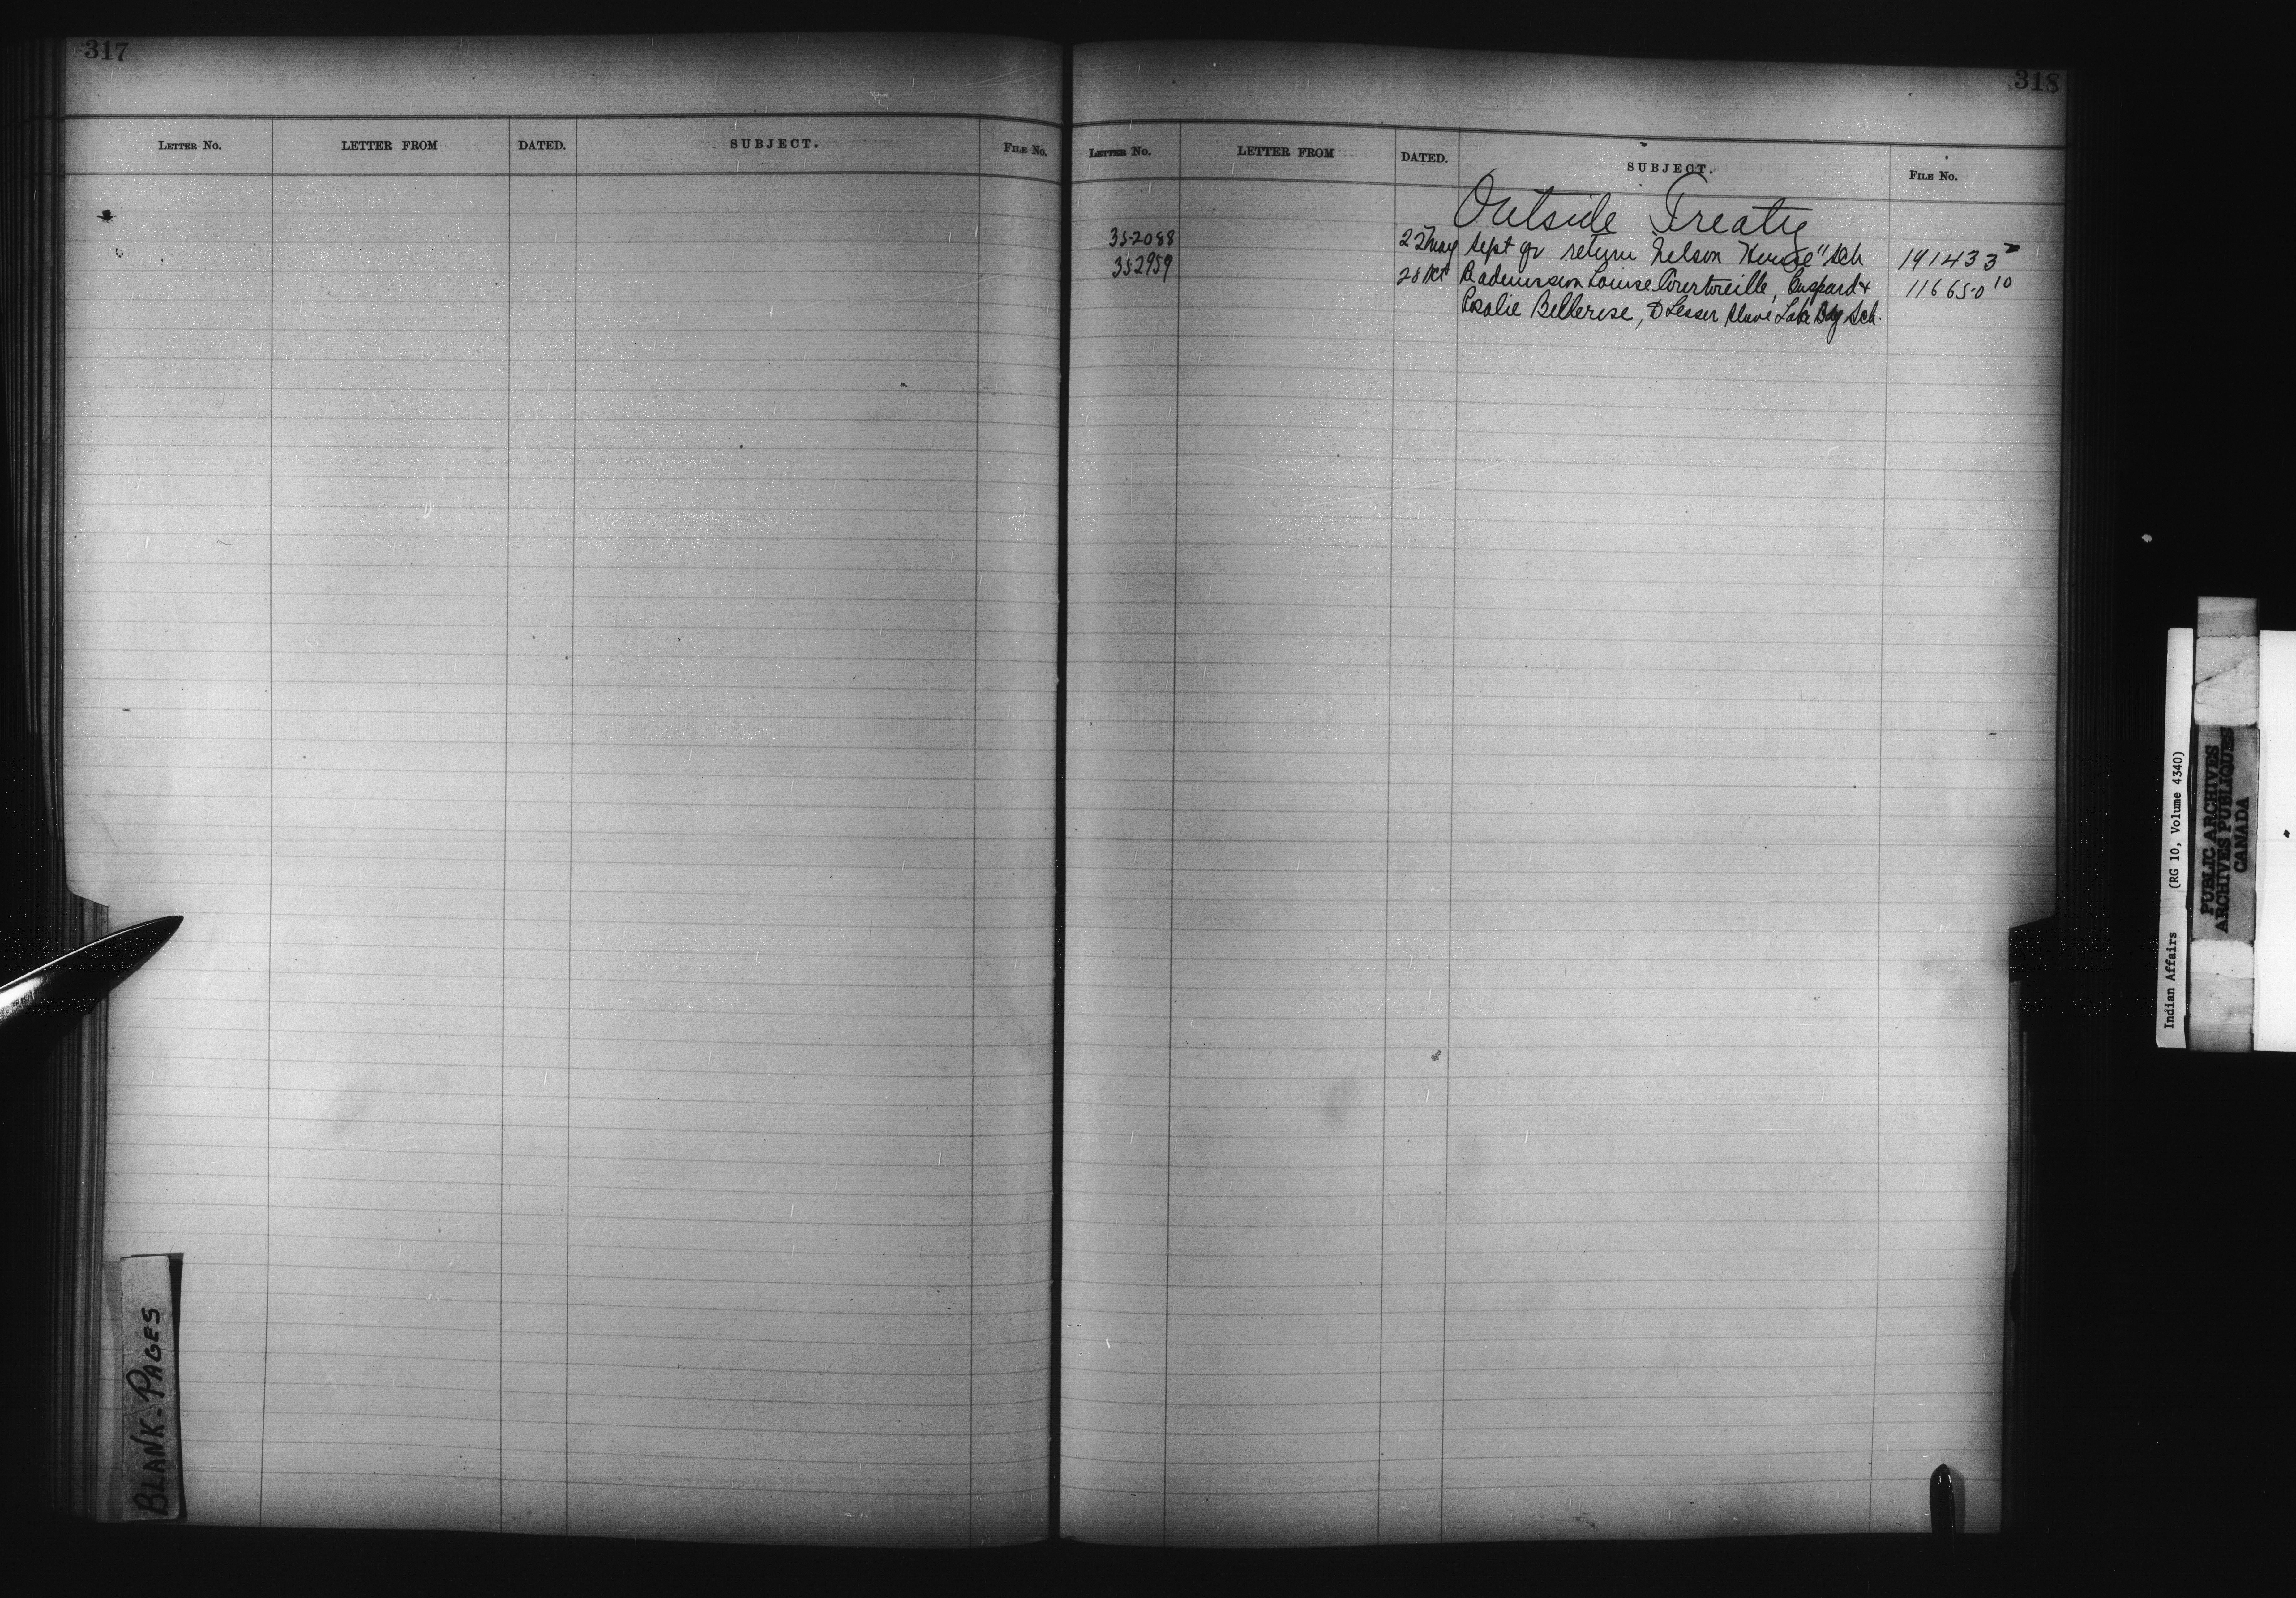 317
LETTER NO. LETTER FROM DATED. SUBJECT. FILE NO.
BLANK-PAGES
318
LETTER NO. LETTER FROM DATED. SUBJECT. FILE NO.
Outside Treaty
352088 22 May Sept qr return Nelson House "Sch 191433
352959 28 Oct Re admission Louise Courtoreille, Gaspard & 116650 10
Rosalie Bellerose, to Lesser Slave Lake Bdg Sch.
Indian Affairs (RG 10, Volume 4340)
PUBLIC ARCHIVES
ARCHIVES PUBLIQUES
CANADA